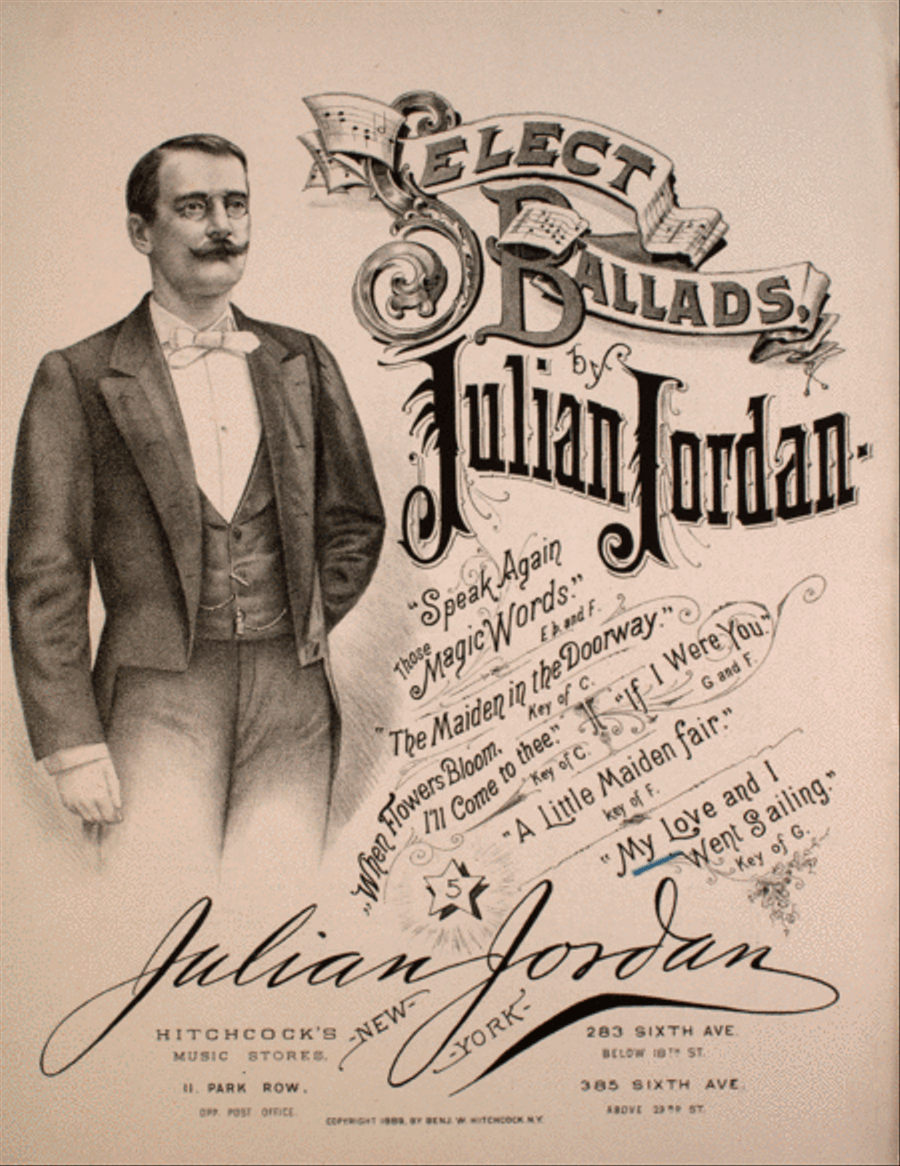 SELECT
BALLADS.
by
Julian Jordan.
"Speak Again
Those Magic Words."
E♭ and F.
"The Maiden in the Doorway."
Key of C.
"If I Were You."
G and F.
"When Flowers Bloom,
I'll Come to thee."
Key of C.
"A Little Maiden fair."
key of F.
"My Love and I
Went Sailing."
Key of G.
5
Julian Jordan
HITCHCOCK'S
MUSIC STORES.
-NEW-
-YORK-
11. PARK ROW.
OPP. POST OFFICE.
283 SIXTH AVE.
BELOW 18TH ST.
385 SIXTH AVE.
ABOVE 23RD ST.
COPYRIGHT 1889, BY BENJ. W. HITCHCOCK. N.Y.